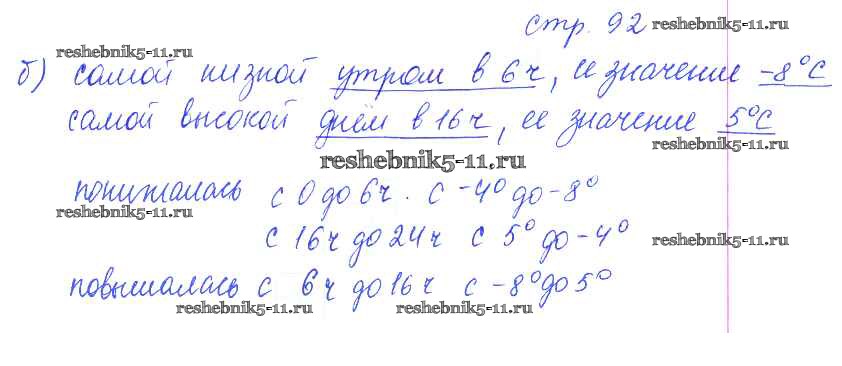 стр. 92
reshebnik5-11.ru
reshebnik5-11.ru
б) самой низкой утром в 6ч, ее значение -8°С
самой высокой днём в 16ч, ее значение 5°С
reshebnik5-11.ru
reshebnik5-11.ru
понижалась с 0 до 6ч. с -4° до -8°
reshebnik5-11.ru
с 16ч до 24ч с 5° до -4°
reshebnik5-11.ru
повышалась с 6ч до 16ч с -8° до 5°
reshebnik5-11.ru
reshebnik5-11.ru